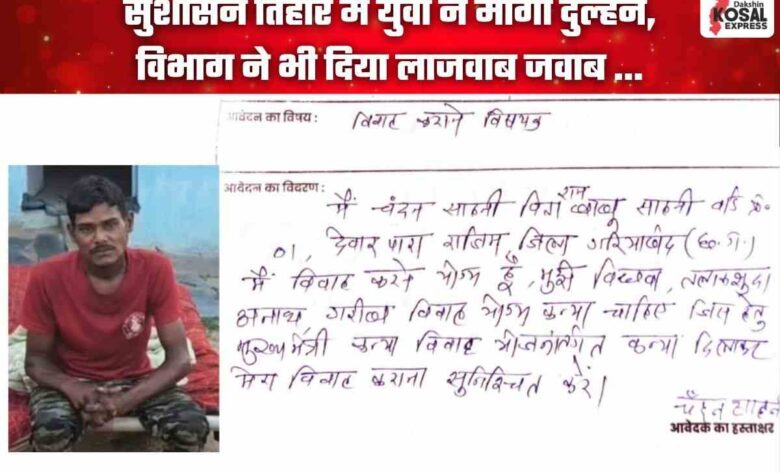 सुशासन तिहार में युवा ने मांगी दुल्हन,
विभाग ने भी दिया लाजवाब जवाब ...
Dakshin
KOSAL
EXPRESS
आवेदन का विषय :
विवाह कराने विषयक
आवेदन का विवरण :
मैं चंदन साहनी पिता राम बाबू साहनी वार्ड क्र.
01, देवार पारा राजिम, जिला गरियाबंद (छ.ग.)
मैं विवाह करने योग्य हूँ, मुझे विधवा, तलाकशुदा
अनाथ, गरीब विवाह योग्य कन्या चाहिए जिस हेतु
मुख्यमंत्री कन्या विवाह योजनांतर्गत कन्या दिलाकर
मेरा विवाह कराना सुनिश्चित करें।
चंदन साहनी
आवेदक का हस्ताक्षर